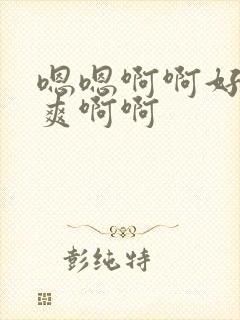 嗯嗯啊啊好
爽啊啊
彭纯特